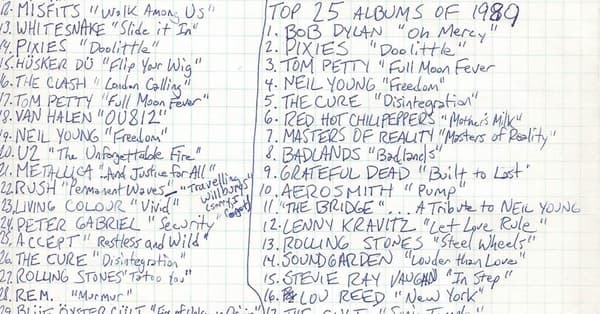 12. MISFITS "Walk Among Us"
13. WHITESNAKE "Slide it In"
14. PIXIES "Doolittle"
15. HÜSKER DÜ "Flip Your Wig"
16. THE CLASH "London Calling"
17. TOM PETTY "Full Moon Fever"
18. VAN HALEN "OU812"
19. NEIL YOUNG "Freedom"
20. U2 "The Unforgettable Fire"
21. METALLICA "And Justice for All"
22. RUSH "Permanent Waves"
"Travelling
Wilburys"
(sorry, I
forgot)
23. LIVING COLOUR "Vivid"
24. PETER GABRIEL "Security"
25. ACCEPT "Restless and Wild"
26. THE CURE "Disintegration"
27. ROLLING STONES "Tatoo You"
28. R.E.M. "Murmur"
29. BLUE ÖYSTER CULT
TOP 25 ALBUMS OF 1989
1. BOB DYLAN "Oh Mercy"
2. PIXIES "Doolittle"
3. TOM PETTY "Full Moon Fever
4. NEIL YOUNG "Freedom"
5. THE CURE "Disintegration"
6. RED HOT CHILI PEPPERS "Mother's Milk"
7. MASTERS OF REALITY "Masters of Reality"
8. BADLANDS "Badlands"
9. GRATEFUL DEAD "Built to Last"
10. AEROSMITH "Pump"
11. "THE BRIDGE"... A Tribute to NEIL YOUNG
12. LENNY KRAVITZ "Let Love Rule"
13. ROLLING STONES "Steel Wheels"
14. SOUNDGARDEN "Louder than Love"
15. STEVIE RAY VAUGHN "In Step"
16. LOU REED "New York"
17. THE CULT "Sonic Temple"